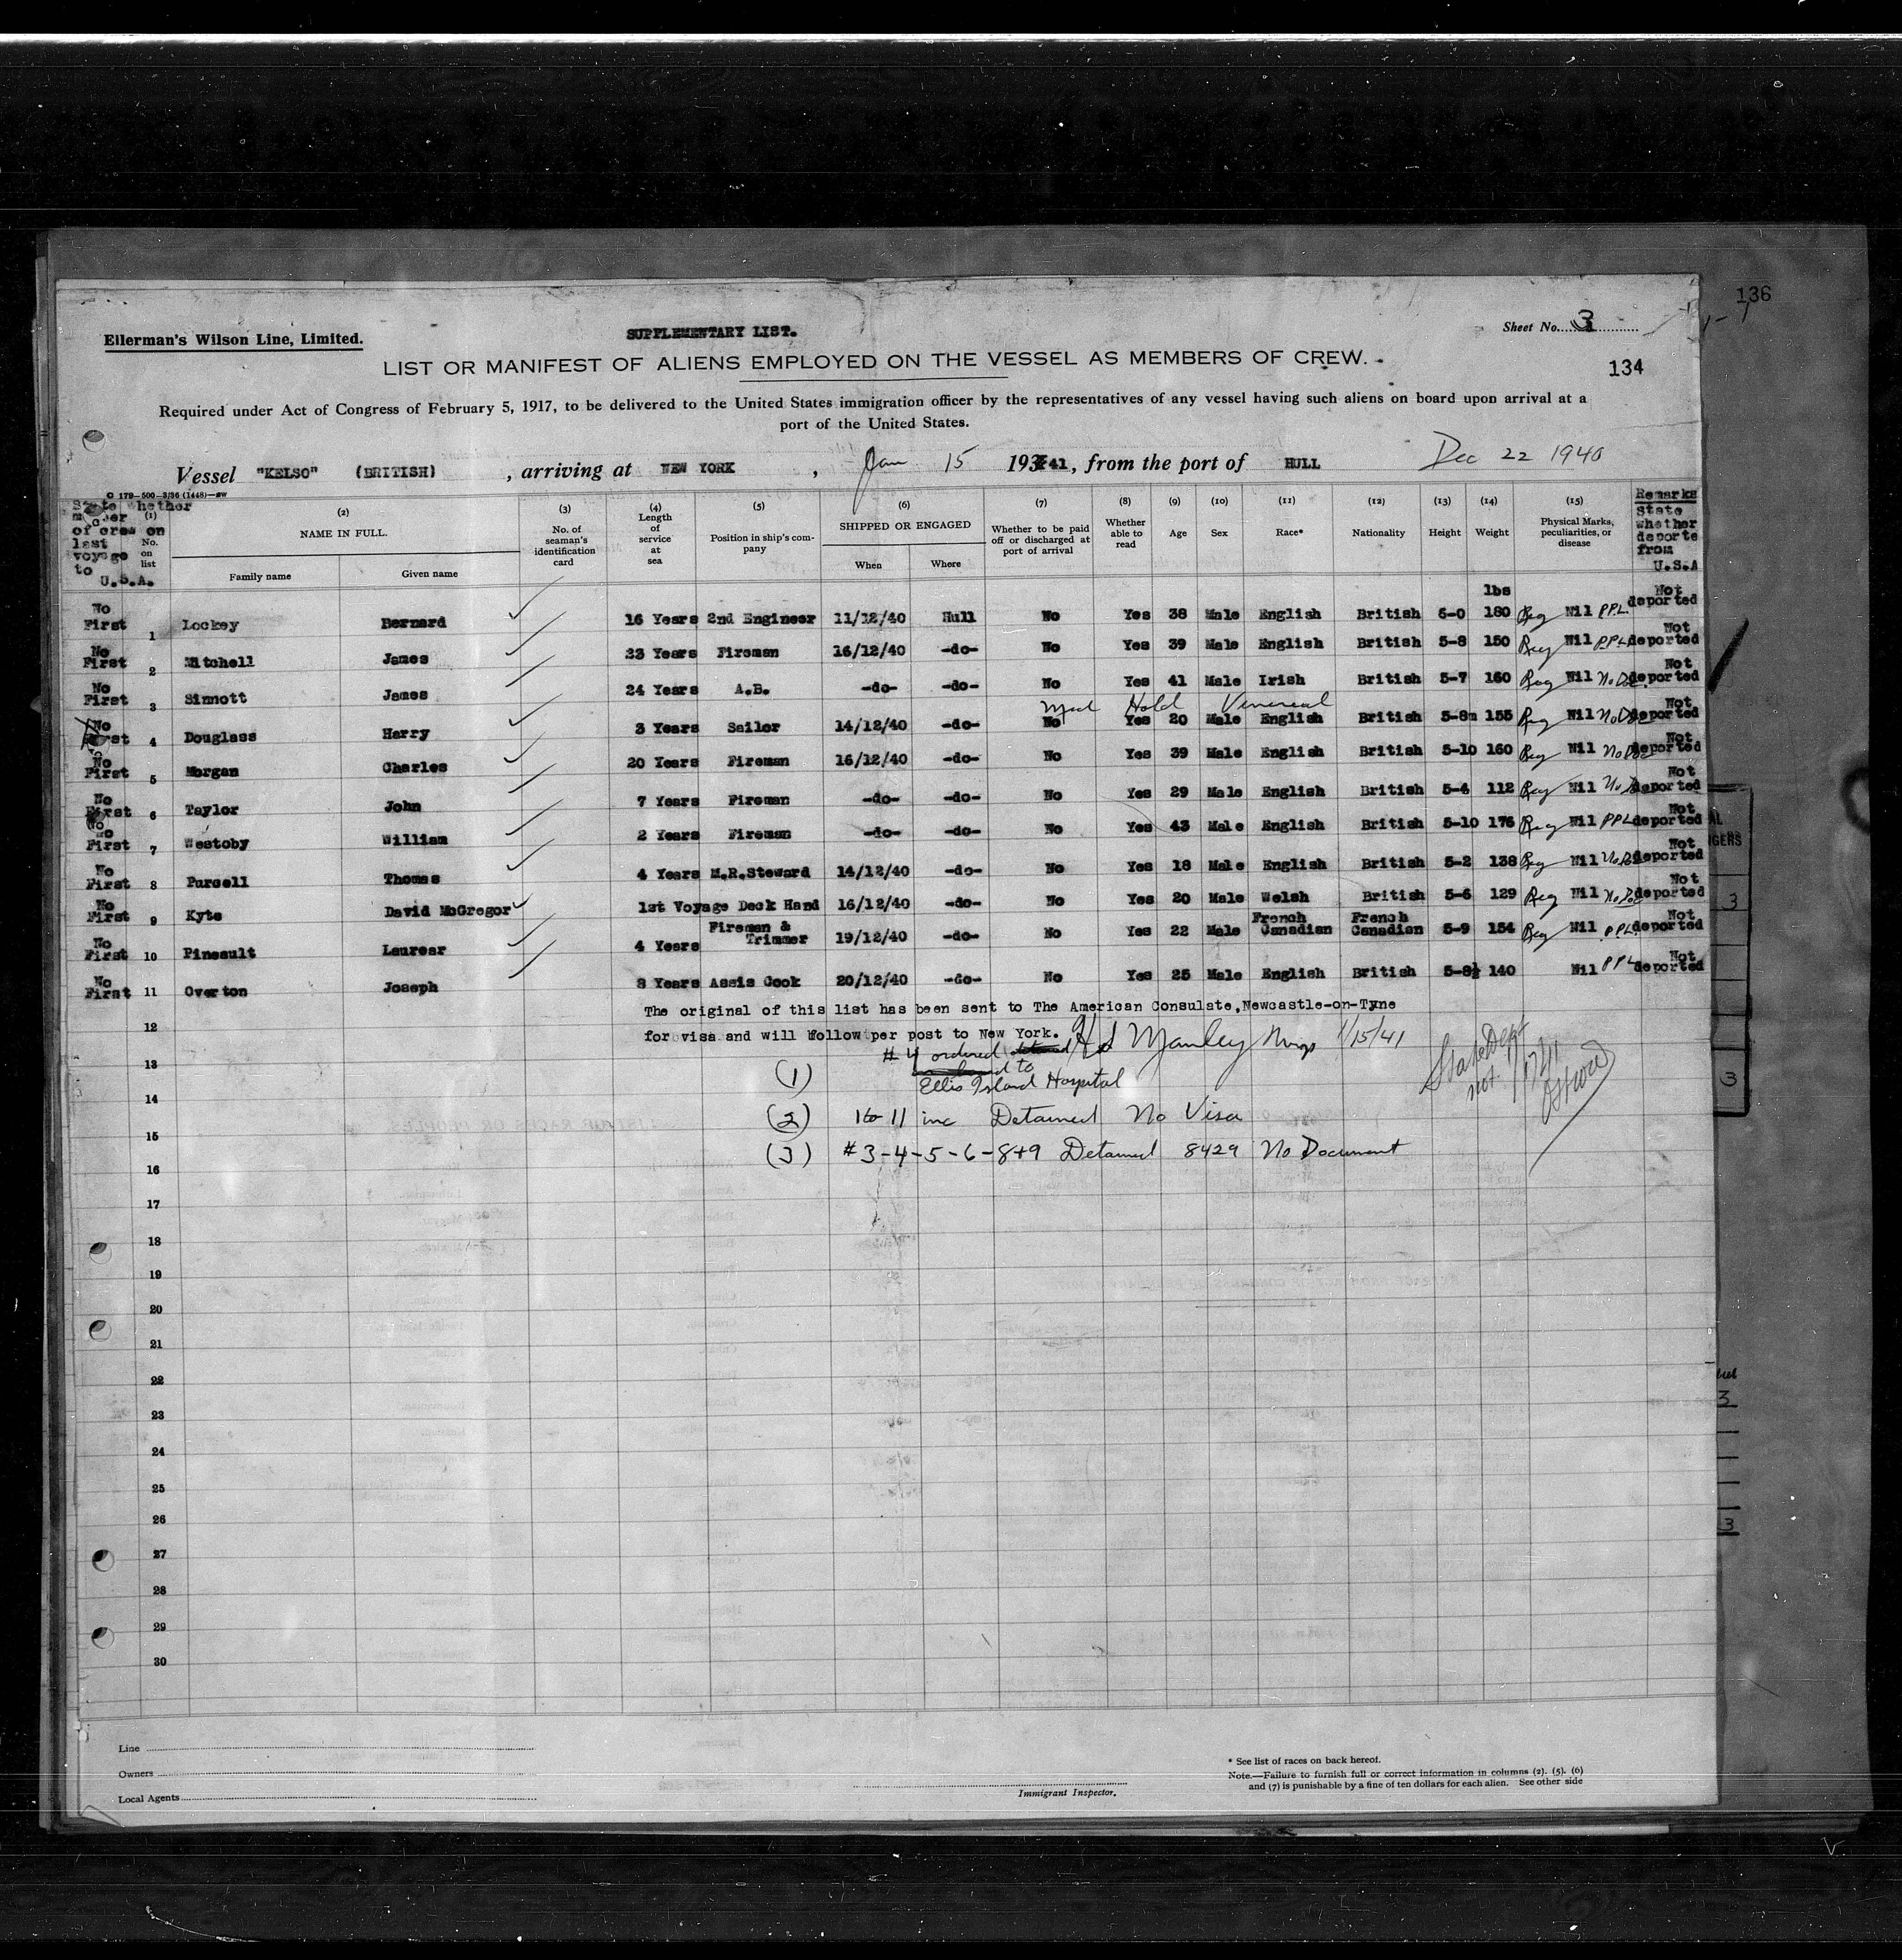 136
Ellerman's Wilson Line, Limited.
SUPPLEMENTARY LIST.
Sheet No. 3
LIST OR MANIFEST OF ALIENS EMPLOYED ON THE VESSEL AS MEMBERS OF CREW.
134
Required under Act of Congress of February 5, 1917, to be delivered to the United States immigration officer by the representatives of any vessel having such aliens on board upon arrival at a
port of the United States.
Vessel "KELSO" (BRITISH), arriving at NEW YORK, Jan 15 1941, from the port of HULL Dec 22 1940
State whether member of crew on last voyage to U.S.A.
(1) No. on list
(2) NAME IN FULL. Family name Given name
(3) No. of seaman's identification card
(4) Length of service at sea
(5) Position in ship's company
(6) SHIPPED OR ENGAGED When Where
(7) Whether to be paid off or discharged at port of arrival
(8) Whether able to read
(9) Age
(10) Sex
(11) Race*
(12) Nationality
(13) Height
(14) Weight
(15) Physical Marks, peculiarities, or disease
Remarks State whether deporte from U.S.A
lbs
No First 1 Lockey Bernard 16 Years 2nd Engineer 11/12/40 Hull No Yes 38 Male English British 6-0 180 Nil PPL Not deported
No First 2 Mitchell James 23 Years Fireman 16/12/40 -do- No Yes 39 Male English British 5-8 150 Nil PPL Not deported
No First 3 Sinnott James 24 Years A.B. -do- -do- No Yes 41 Male Irish British 5-7 160 Nil No Doc Not deported
Med Hold Venereal
No First 4 Douglass Harry 3 Years Sailor 14/12/40 -do- No Yes 20 Male English British 5-8 155 Nil No Doc Not deported
No First 5 Morgan Charles 20 Years Fireman 16/12/40 -do- No Yes 39 Male English British 5-10 160 Nil No Doc Not deported
No First 6 Taylor John 7 Years Fireman -do- -do- No Yes 29 Male English British 5-4 112 Nil No Doc Not deported
No First 7 Westoby William 2 Years Fireman -do- -do- No Yes 43 Male English British 5-10 176 Nil PPL Not deported
No First 8 Purcell Thomas 4 Years M.R.Steward 14/12/40 -do- No Yes 18 Male English British 5-2 138 Nil No Doc Not deported
No First 9 Kyte David McGregor 1st Voyage Deck Hand 16/12/40 -do- No Yes 20 Male Welsh British 5-6 129 Nil No Doc Not deported
No First 10 Pineault Laurear 4 Years Fireman & Trimmer 19/12/40 -do- No Yes 22 Male French Canadian French Canadian 5-9 154 Nil PPL Not deported
No First 11 Overton Joseph 8 Years Assis Cook 20/12/40 -do- No Yes 25 Male English British 5-8½ 140 Nil PPL Not deported
The original of this list has been sent to The American Consulate, Newcastle-on-Tyne
12
for visa and will follow per post to New York. Manley 1/15/41
# 4 ordered
13
(1) to Ellis Island Hospital
State Dept
14
(2) 1 to 11 inc Detained No Visa
15
(3) #3-4-5-6-8+9 Detained 8429 No Document
16
17
18
19
20
21
22
23
24
25
26
27
28
29
30
Line
Owners
Local Agents
Immigrant Inspector.
* See list of races on back hereof.
Note.—Failure to furnish full or correct information in columns (2). (5). (6)
and (7) is punishable by a fine of ten dollars for each alien. See other side